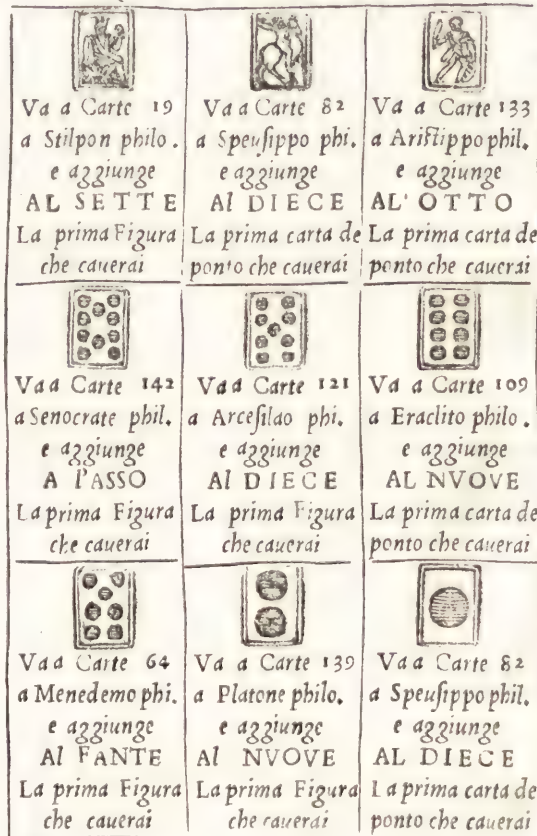 Va a Carte 19
a Stilpon philo.
e aggiunge
AL SETTE
La prima Figura
che cauerai
Va a Carte 82
a Speuſippo phi.
e aggiunge
Al DIECE
La prima carta de
ponto che cauerai
Va a Carte 133
a Ariſtippo phil.
e aggiunge
AL' OTTO
La prima carta de
ponto che cauerai
Va a Carte 142
a Senocrate phil.
e aggiunge
A l'ASSO
La prima Figura
che cauerai
Va a Carte 121
a Arceſilao phi.
e aggiunge
Al DIECE
La prima Figura
che cauerai
Va a Carte 109
a Eraclito philo.
e aggiunge
AL NVOVE
La prima carta de
ponto che cauerai
Va a Carte 64
a Menedemo phi.
e aggiunge
Al FANTE
La prima Figura
che cauerai
Va a Carte 139
a Platone philo.
e aggiunge
Al NVOVE
La prima Figura
che cauerai
Va a Carte 82
a Speuſippo phil.
e aggiunge
AL DIECE
La prima carta de
ponto che cauerai